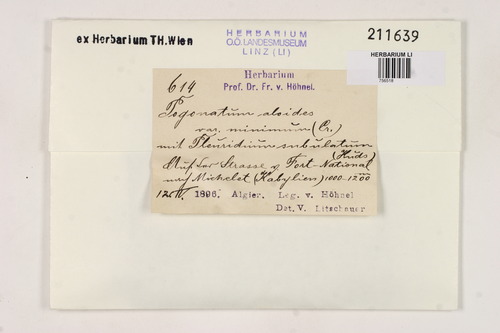 ex Herbarium TH.Wien
HERBARIUM
O.Ö. LANDESMUSEUM
LINZ (LI)
211639
HERBARIUM LI
Herbarium
Prof. Dr. Fr. v. Höhnel.
614
Pogonatum aloides
var. minimum (Cr.)
mit Pleuridium subulatum
(Huds)
Auf der Strasse v. Fort-National
nach Michelet (Kabylien) 1000-1200
1896. Algier. Leg. v. Höhnel
Det. V. Litschauer